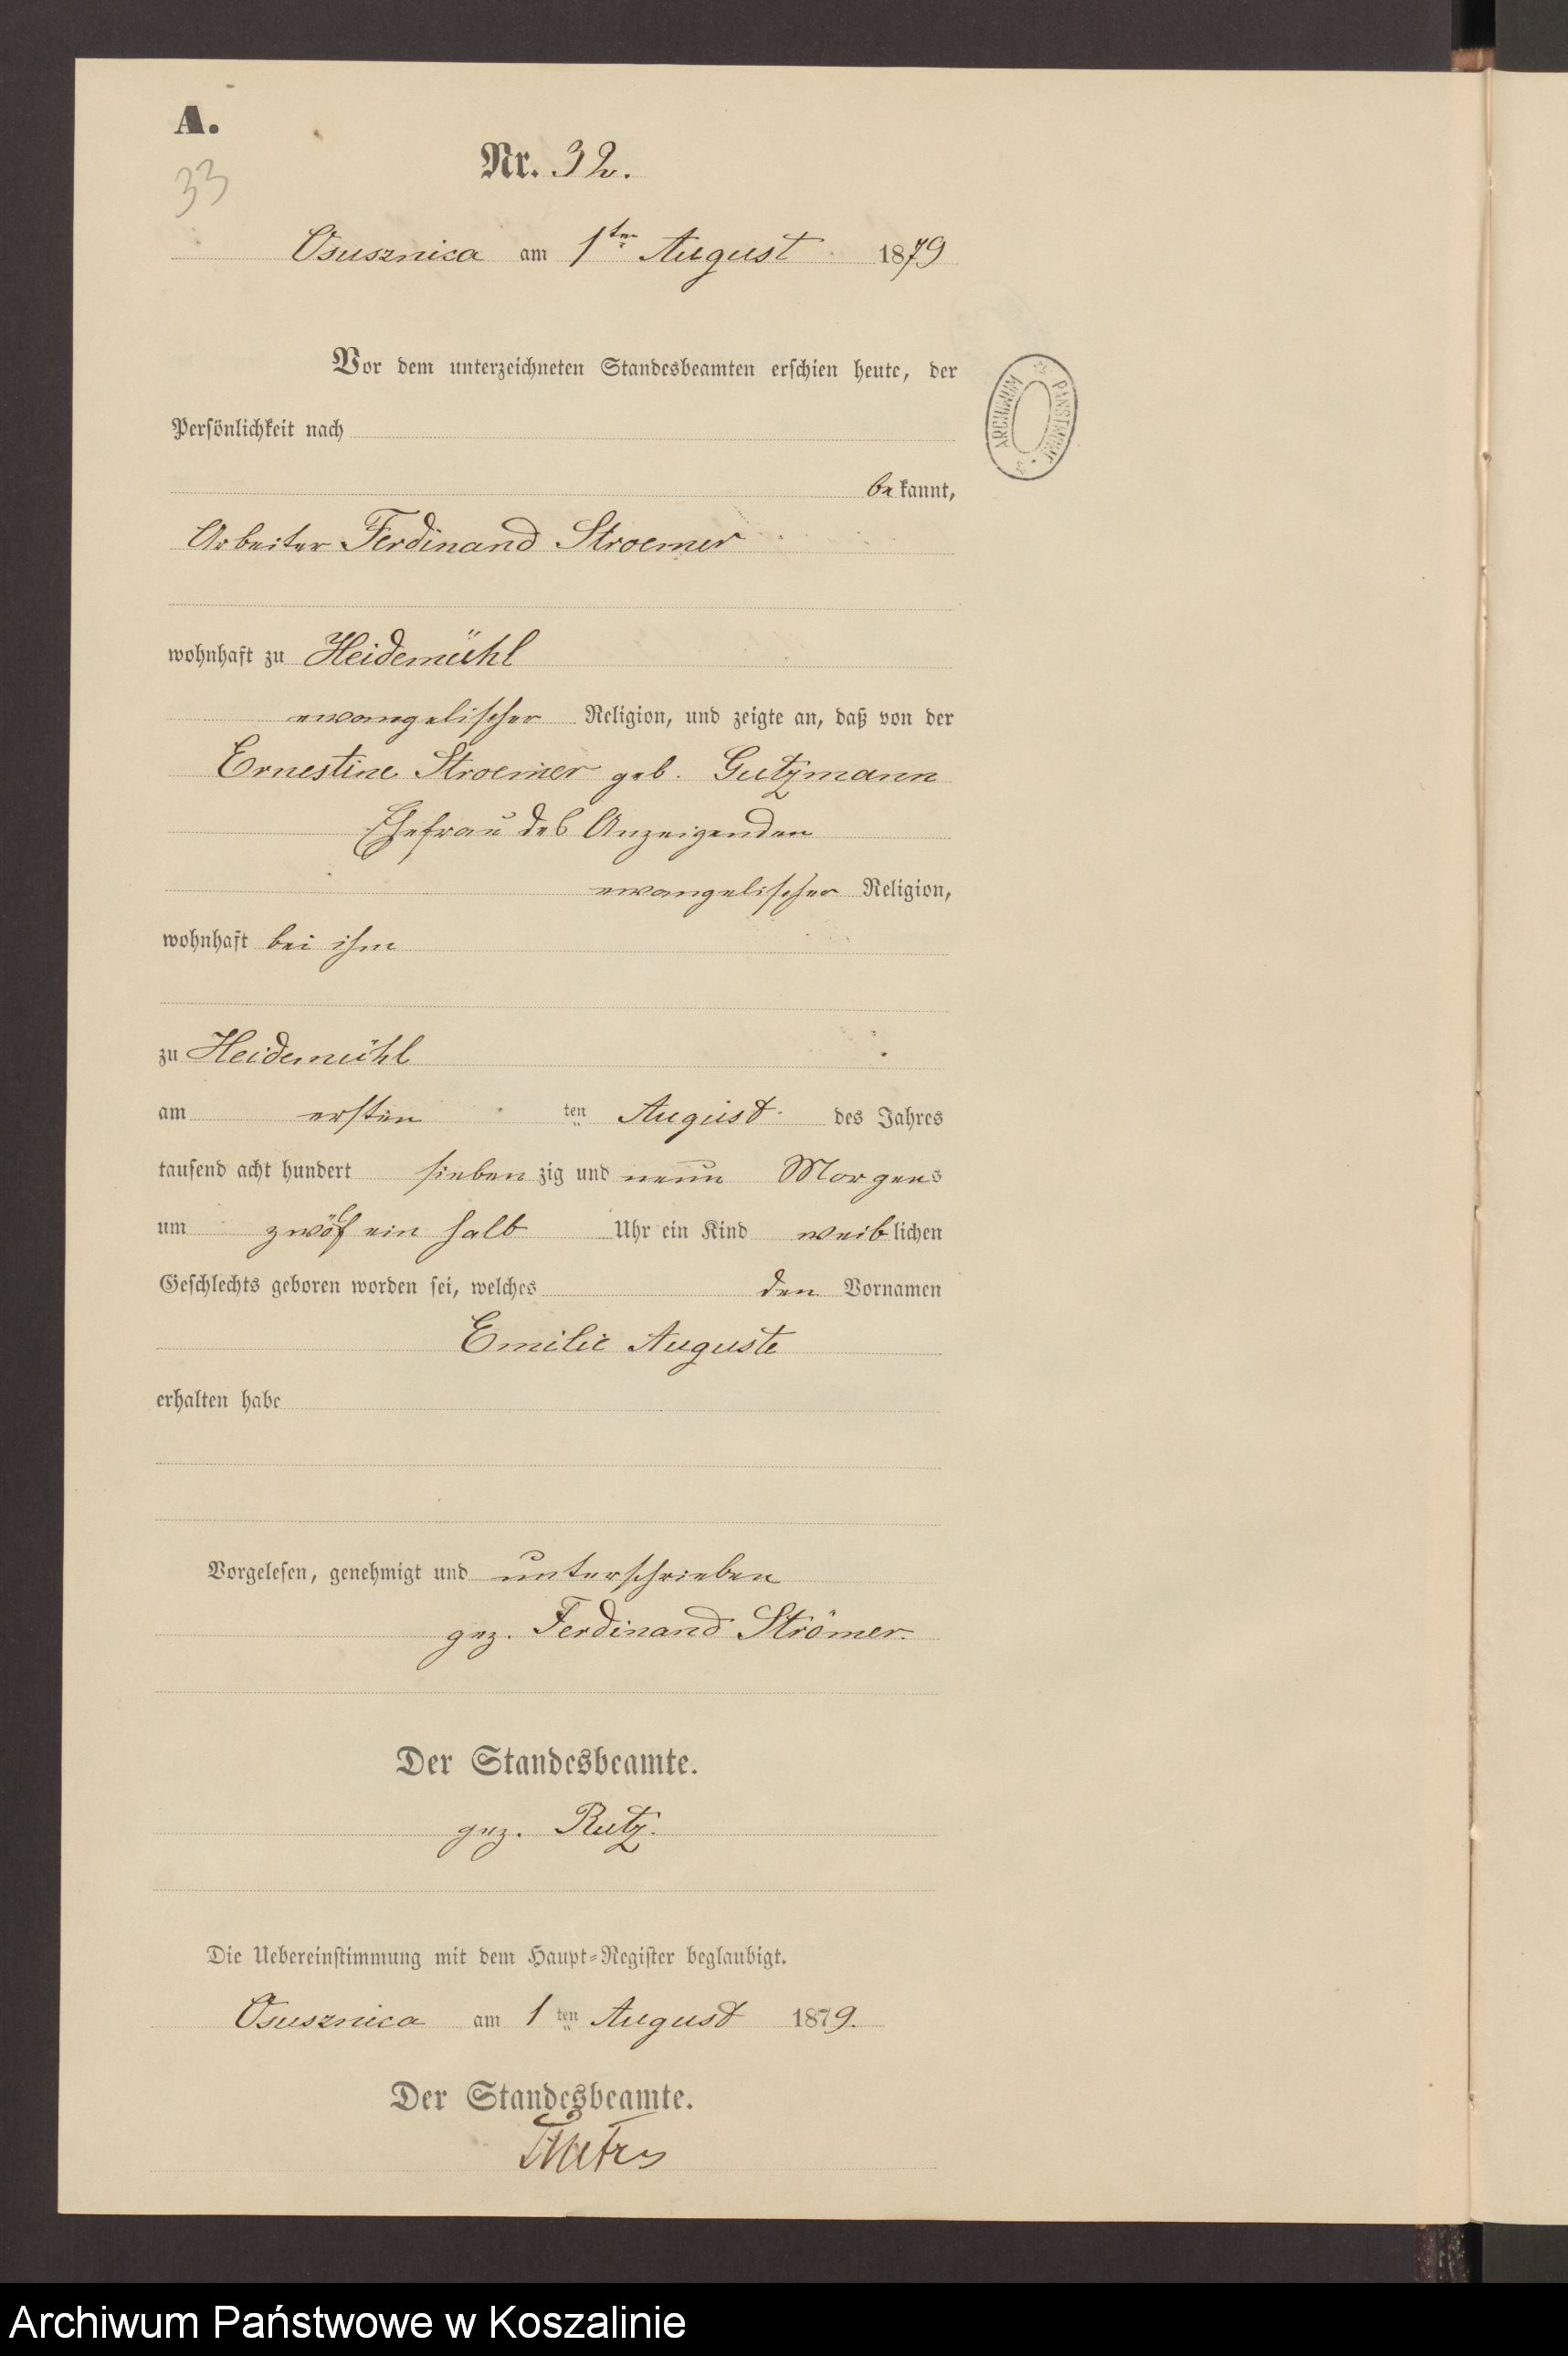 A.
33
Nr. 32.
Osusznica am 1ten August 1879
Vor dem unterzeichneten Standesbeamten erschien heute, der
Persönlichkeit nach
bekannt,
Arbeiter Ferdinand Stroemer
wohnhaft zu Heidemühl
ewangelischer Religion, und zeigte an, daß von der
Ernestine Stroemer geb. Gutzmann
Ehefrau des Anzeigenden
ewangelischer Religion,
wohnhaft bei ihm
zu Heidemühl
am ersten ten August des Jahres
tausend acht hundert siebenzig und neun Morgens
um zwölf ein halb Uhr ein Kind weiblichen
Geschlechts geboren worden sei, welches den Vornamen
Emilie Auguste
erhalten habe
Vorgelesen, genehmigt und unterschrieben
gez. Ferdinand Strömer.
Der Standesbeamte.
gez. Rutz.
Die Uebereinstimmung mit dem Haupt-Register beglaubigt.
Osusznica am 1ten August 1879.
Der Standesbeamte.
ARCHIWUM PAŃSTWOWE
Archiwum Państwowe w Koszalinie